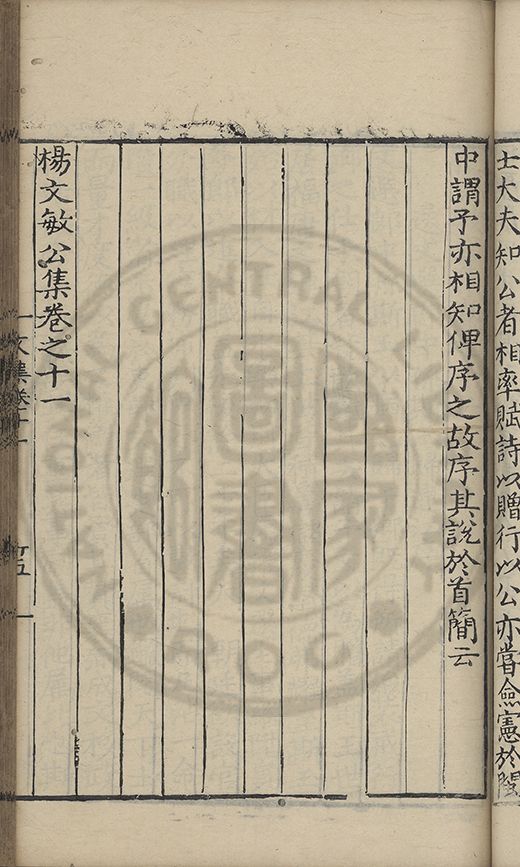 士大夫知公者相率賦詩以贈行以公亦嘗僉憲於閩
中謂予亦相知俾序之故序其說於首簡云
楊文敏公集卷之十一
文集卷十一